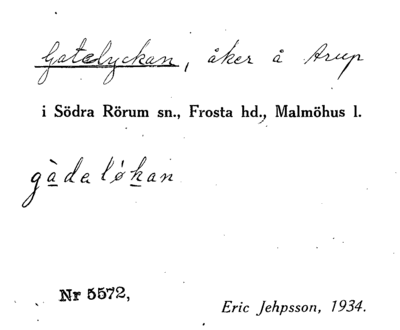 Gatelyckan, åker å Arup
i Södra Rörum sn., Frosta hd., Malmöhus l.
gàdalǿkan
Nr 5572,
Eric Jehpsson, 1934.